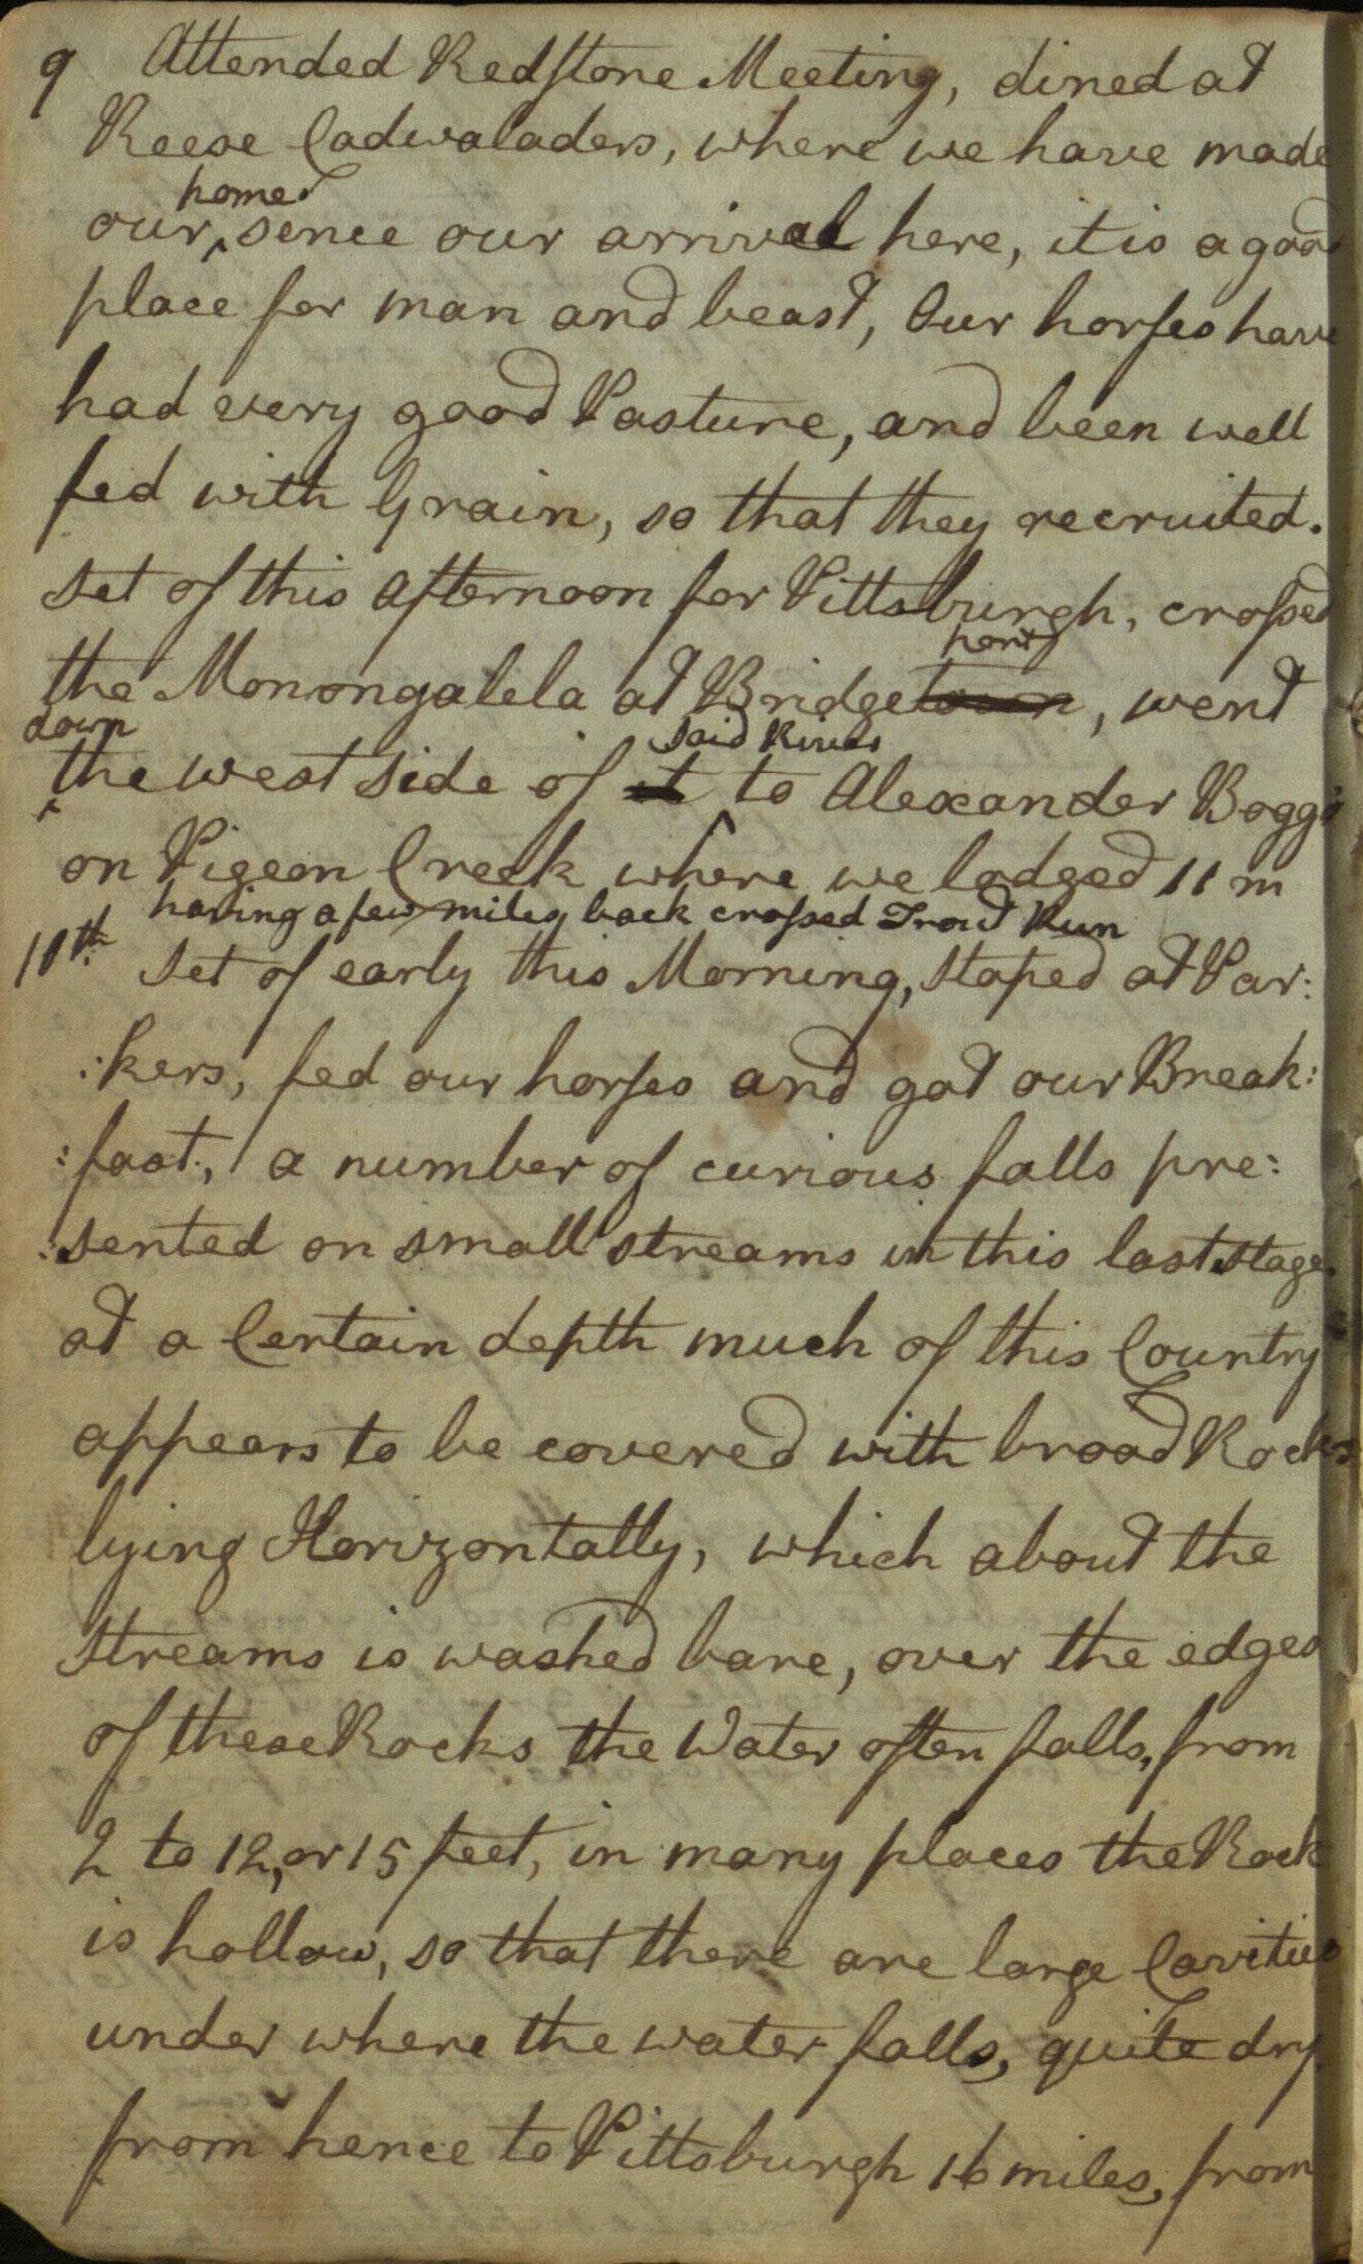 9 Attended Redstone Meeting, dined at
Reese Cadwaladers, where we have made
home
our ^ sence our arrival here, it is a good
place for man and beast, Our horses have
had very good Pasture, and been well
fed with Grain, so that they recruited.
set of this afternoon for Pittsburgh, crossed
port
the Monongalela at Bridgetown, went
down said River
^ the west side of it ^ to Alexander Boggs
on Pigeon Creek where we lodged 11 m
having a few miles back crossed Trout Run
10th. set of early this Morning, staped at Par:
:kers, fed our horses and got our Break:
:fast, a number of curious falls pre:
:sented on small streams in this last stage.
at a Certain depth much of this Country
appears to be covered with broad Rocks
lying Horizontally, which about the
streams is washed bare, over the edges
of these Rocks the Water often falls, from
2 to 12, or 15 feet, in many places the Rock
is hollow, so that there are large Cavities
under where the water falls, quite dry.
from hence to Pittsburgh 16 miles, from